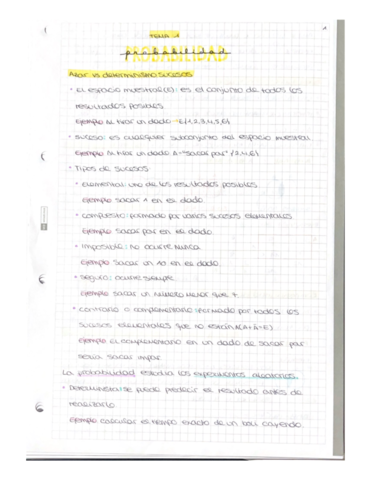 TEMA 1
probabilidad
PROBABILIDAD
Azar vs determinismo sucesos
• El espacio muestral (E): es el conjunto de todos los
resultados posibles.
Ejemplo Al tirar un dado E{1,2,3,4,5,6}
• Suceso: es cualquier subconjunto del espacio muestral.
Ejemplo Al tirar un dado A="Sacar par" {2,4,6}
• Tipos de sucesos
• Elemental: uno de los resultados posibles.
Ejemplo Sacar 1 en el dado
• Compuesto: formado por varios sucesos elementales
Ejemplo Sacar par en el dado.
• Imposible: no ocurre nunca
Ejemplo Sacar un 10 en el dado.
• Seguro: ocurre siempre.
Ejemplo sacar un número menor que 7.
• Contrario o complementario: formado por todos los
sucesos elementales que no están en A (A+Ā=E)
Ejemplo el complementario en un dado de sacar par
sería sacar impar
La probabilidad estudia los experimentos aleatorios.
• Determinista: se puede predecir el resultado antes de
realizarlo.
Ejemplo calcular el tiempo exacto de un boli cayendo.